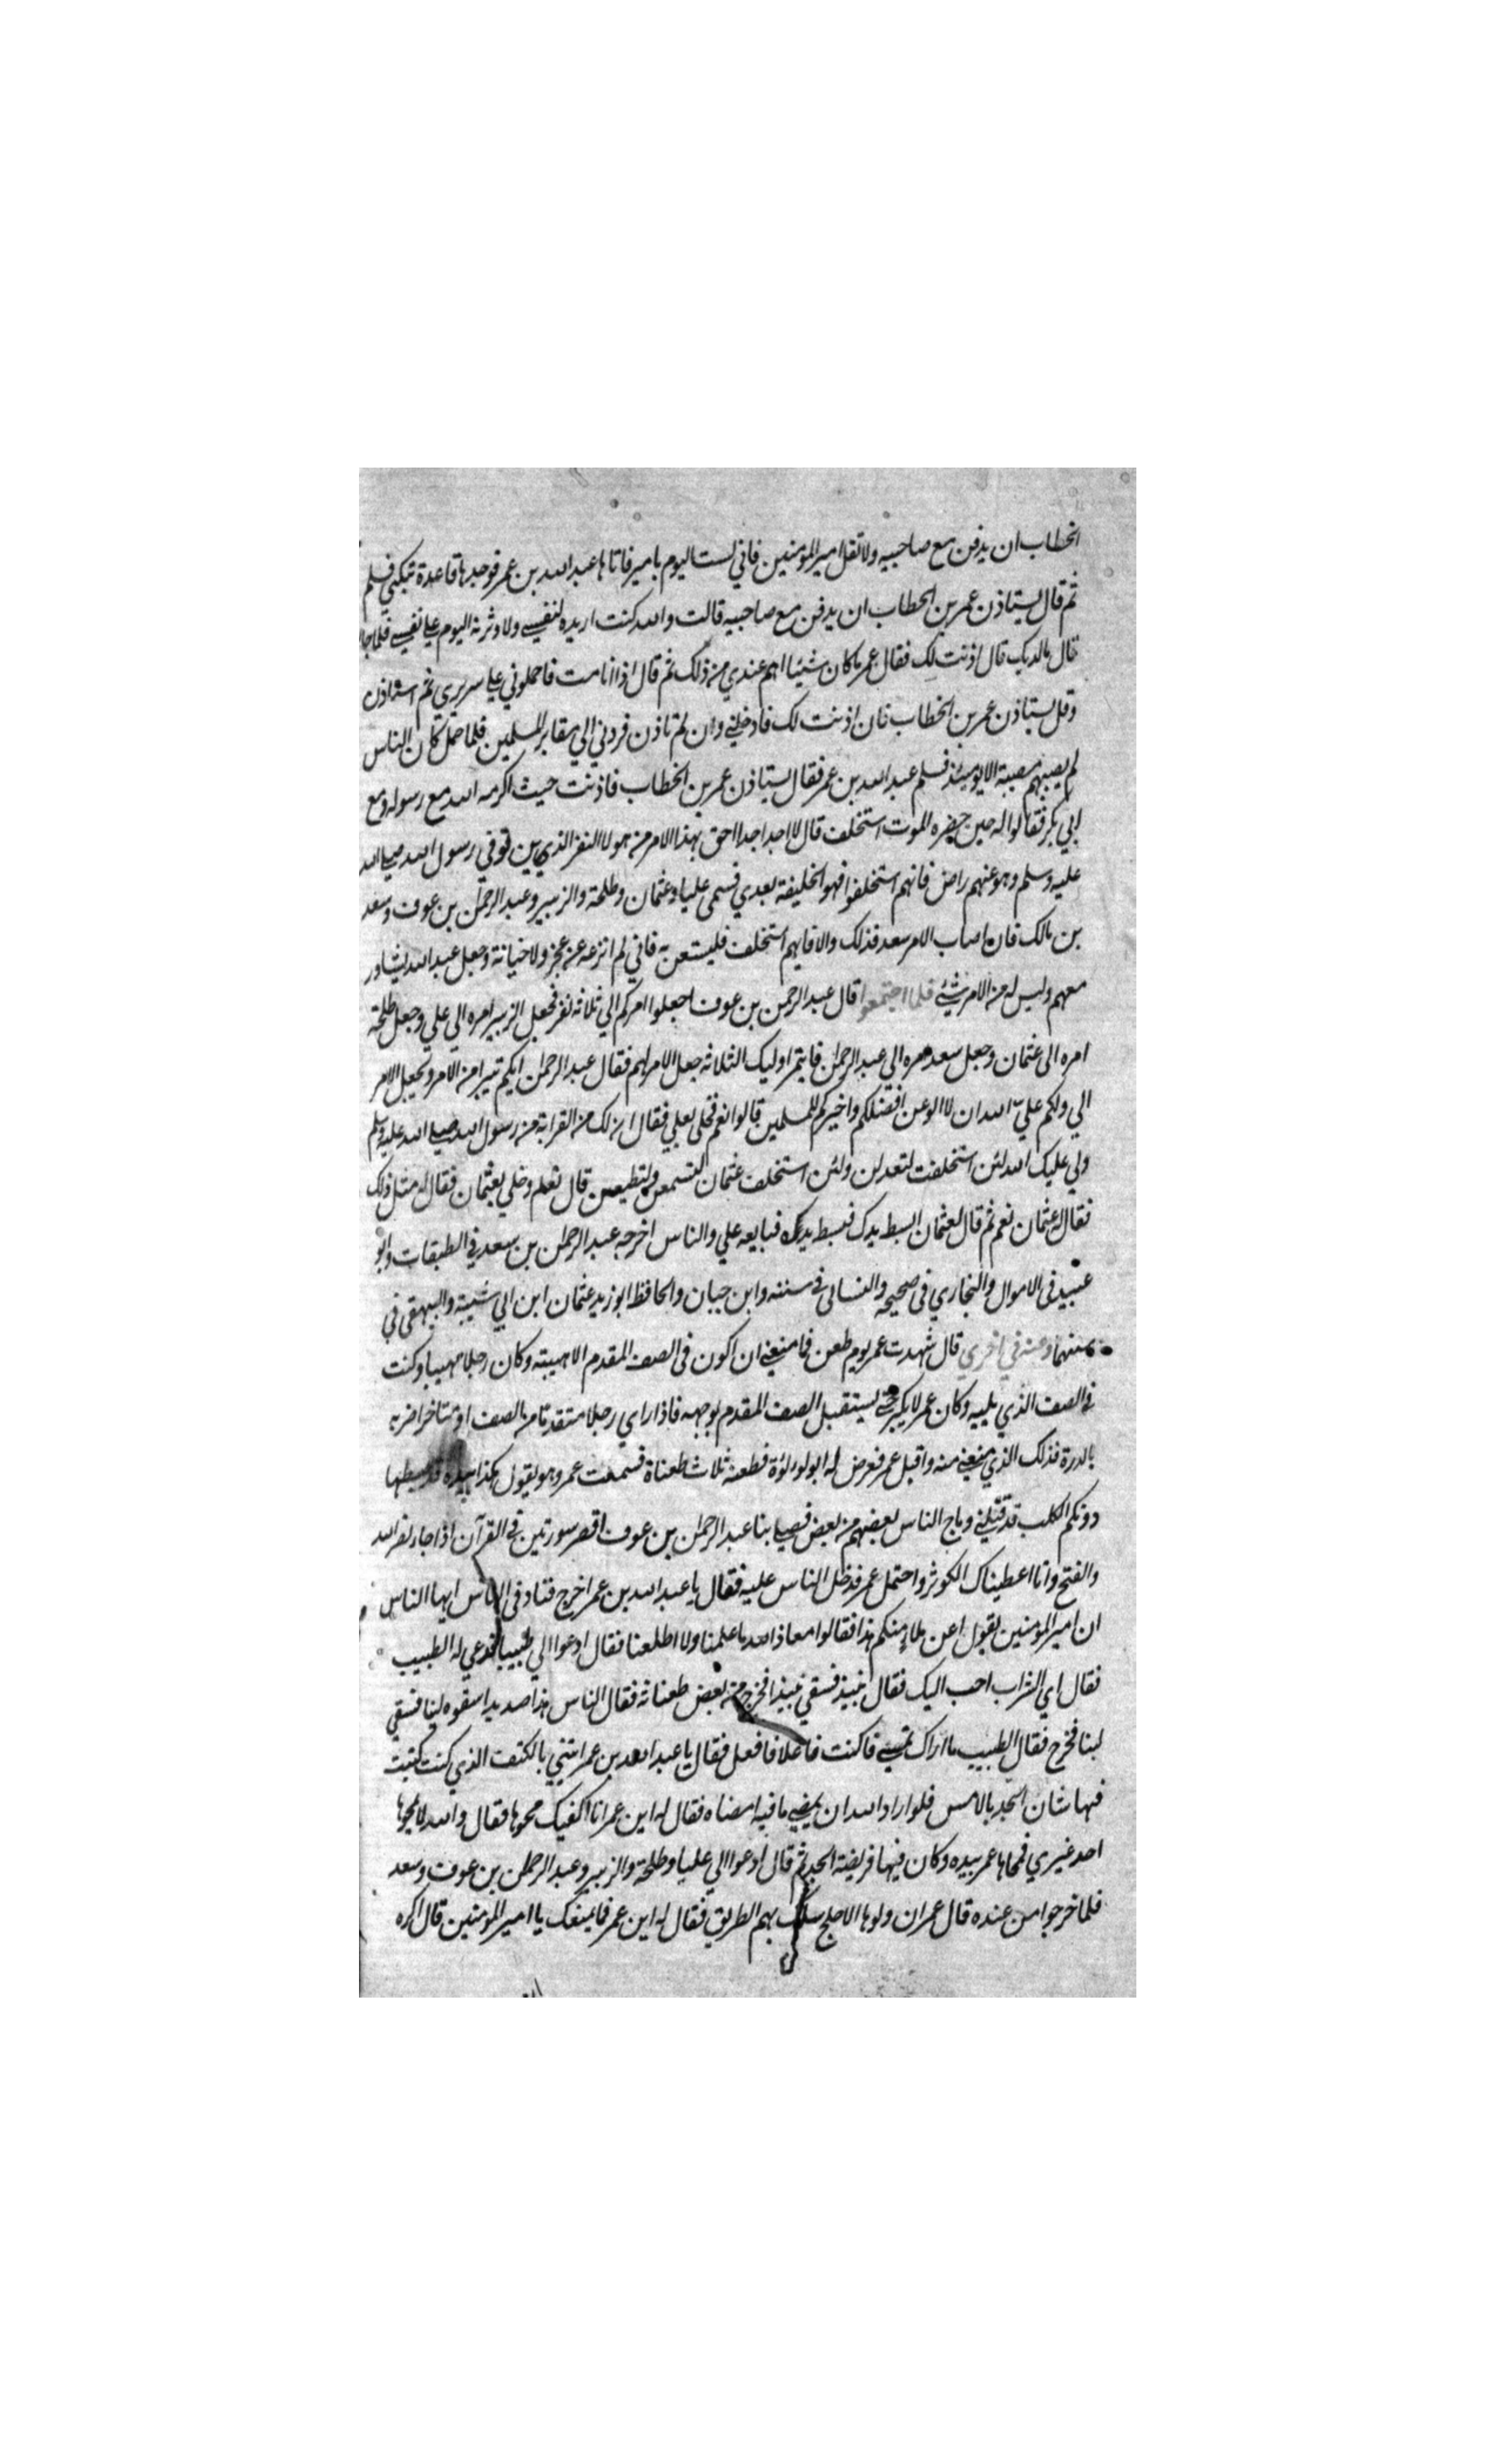 الخطاب ان يدفن مع صاحبيه ولا تقل امير المومنين فاني لست اليوم بامير فاتاها عبد الله بن عمر فوجدها قاعدة تبكي فسلم
ثم قال يستاذن عمر بن الخطاب ان يدفن مع صاحبيه قالت والله كنت اريده لنفسي ولاوثرنه اليوم علي نفسي فلما جا
قال مالديك قال اذنت لك فقال عمر ما كان شيئا اهم عندي من ذلك ثم قال اذا انا مت فاحملوني علي سريري ثم استاذن
وقل يستاذن عمر بن الخطاب فان اذنت لك فادخلني وان لم تاذن فردني الي مقابر المسلمين فلما حمل كان الناس
لم يصبهم مصيبة الا يومئذ فسلم عبد الله بن عمر فقال يستاذن عمر بن الخطاب فاذنت حيث اكرمه الله مع رسوله ومع
ابي بكر فقالوا له حين حضره الموت استخلف قال لا اجد احدا احق بهذا الامر من هولا النفر الذين توفي رسول الله صلي الله
عليه وسلم وهو عنهم راض فايهم استخلفوا فهو الخليفة بعدي فسمي عليا وعثمان وطلحة والزبير وعبد الرحمن بن عوف وسعد
بن مالك فان اصاب الامر سعد فذلك والا فايهم استخلف فليستعن به فاني لم انزعه عن عجز ولا خيانة وجعل عبد الله يشاور
معهم وليس له من الامر شيئ فلما اجتمعوا قال عبد الرحمن بن عوف اجعلوا امركم الي ثلاثة نفر فجعل الزبير امره الي علي وجعل طلحة
امره الي عثمان وجعل سعد امره الي عبد الرحمن فايتمر اوليك الثلاثة جعل الامر لهم فقال عبد الرحمن ايكم تبرا من الامر ويجعل الامر
الي ولكم علي الله ان لا الو عن افضلكم واخيركم للمسلمين قالوا نعم فخلي بعلي فقال ان لك من القرابة من رسول الله صلي الله عليه وسلم
ولي عليك الله لئن استخلفت لتعدلن ولئن استخلف عثمان لتسمعن ولتطيعن قال نعم وخلي بعثمان فقال له مثل ذلك
فقال له عثمان نعم ثم قال لعثمان ابسط يدك فبسط يده فبايعه علي والناس اخرجه عبد الرحمن بن سعد في الطبقات وابو
عبيد في الاموال والبخاري في صحيحه والنسائي في سننه وابن حبان والحافظ ابو زيد عثمان ابن ابي شيبة والبيهقي في
سننهما وعنه في اخري قال شهدت عمر يوم طعن فما منعني ان اكون في الصف المقدم الا هيبته وكان رجلا مهيبا وكنت
في الصف الذي يليه وكان عمر لا يكبر حتي يستقبل الصف المقدم بوجهه فاذا راي رجلا متقدما من الصف او متاخرا ضربه
بالدرة فذلك الذي منعني منه واقبل عمر فعرض له ابو لولوة فطعنه ثلاث طعناة فسمعت عمر وهو يقول هكذا بيده قد بسطها
دونكم الكلب قد قتلني وماج الناس بعضهم من بعض فصلي بنا عبد الرحمن بن عوف اقصر سورتين في القرآن اذا جاء نصر الله
والفتح وانا اعطيناك الكوثر واحتمل عمر فدخل الناس عليه فقال يا عبد الله بن عمر اخرج فناد في الناس ايها الناس
ان امير المومنين يقول اعن ملاء منكم هذا فقالوا معاذ الله ما علمنا ولا اطلعنا فقال ادعوا الي طبيبا فدعي له الطبيب
فقال اي الشراب احب اليك فقال نبيذ فسقي نبيذا فخرج من بعض طعناته فقال الناس هذا صديد اسقوه لبنا فسقي
لبنا فخرج فقال الطبيب ما اراك تمسي فما كنت فاعلا فافعل فقال يا عبد الله بن عمر ائتني بالكتف الذي كنت كتبت
فيها شان الجد بالامس فلو اراد الله ان يمضي ما فيه امضاه فقال له ابن عمر انا اكفيك محوها فقال والله لا يمحوها
احد غيري فمحاها عمر بيده وكان فيها فريضة الجد ثم قال ادعوا الي عليا وطلحة والزبير وعبد الرحمن بن عوف وسعد
فلما خرجوا من عنده قال عمر ان ولوها الاجلح سلك بهم الطريق فقال له ابن عمر فما يمنعك يا امير المومنين قال اكره